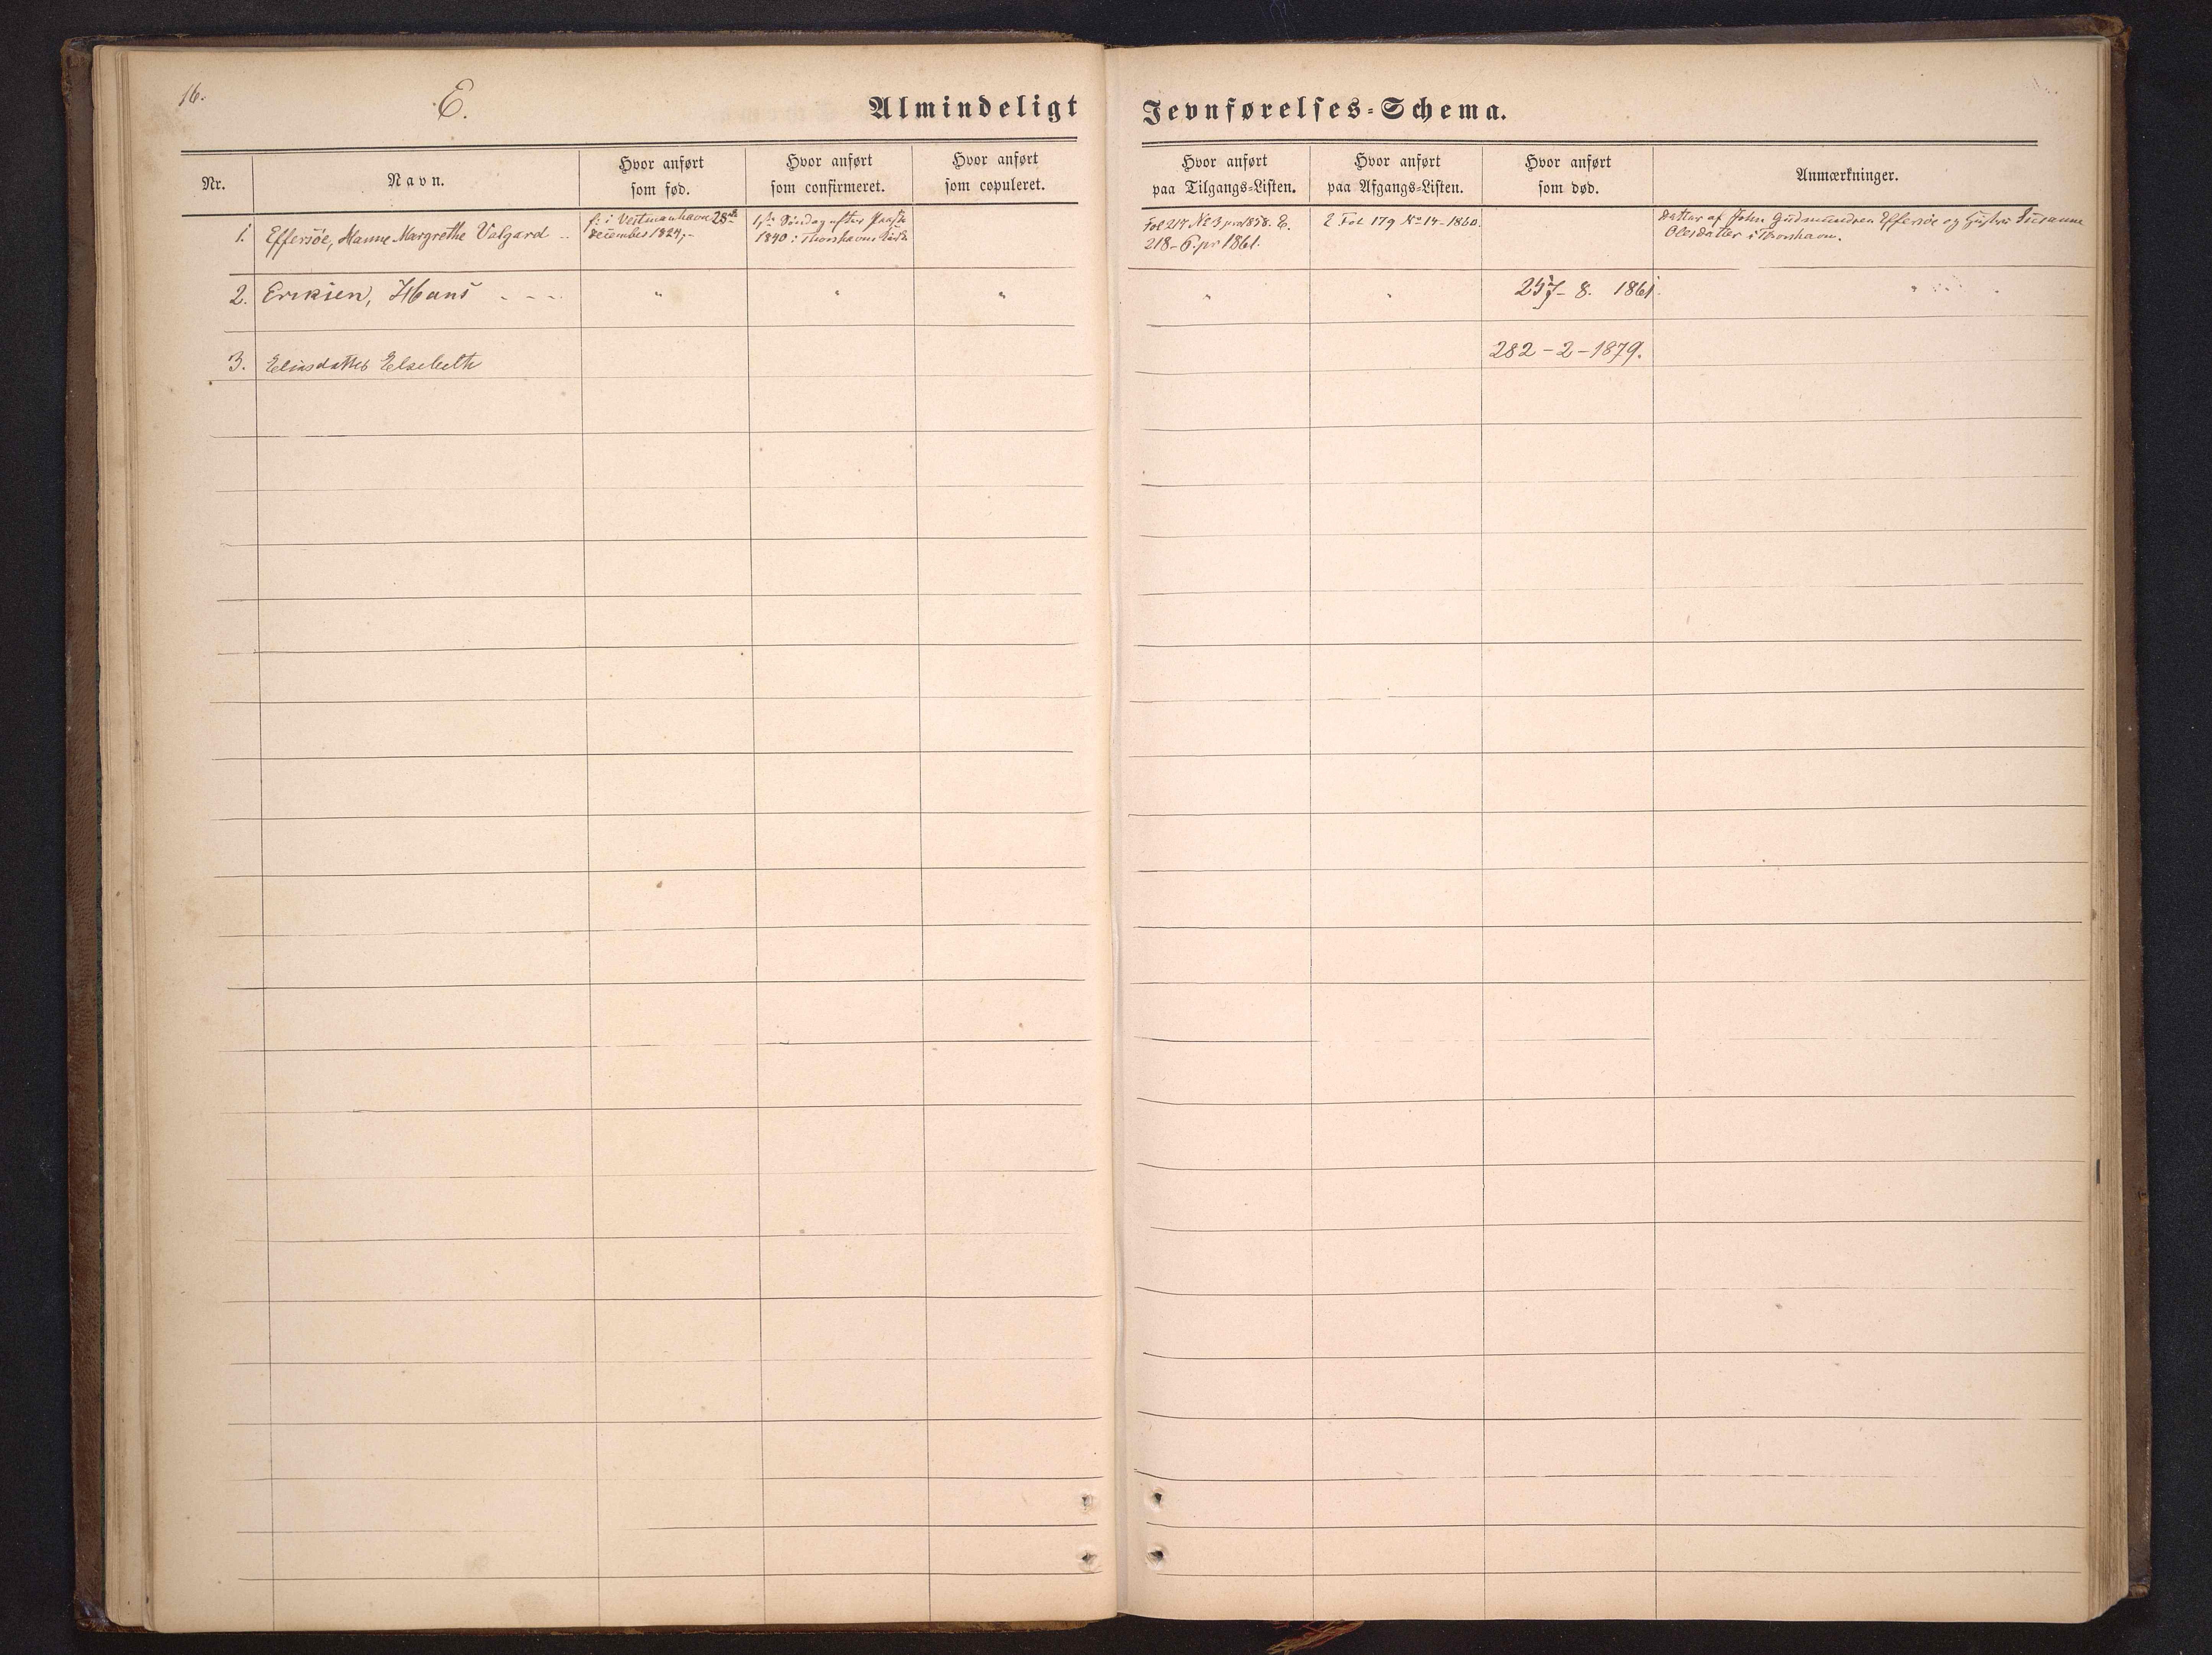 16.
E.
Almindeligt Jevnførelses-Schema.
Nr.
Navn.
Hvor anført
som fød.
Hvor anført
som confirmeret.
Hvor anført
som copuleret.
Hvor anført
paa Tilgangs-Listen.
Hvor anført
paa Afgangs-Listen.
Hvor anført
som død.
Anmærkninger.
1.
Effersöe, Hanne Margrethe Valgard
f: i Vestmanhavn 28de
December 1824,-
1ste Söndag efter Paaske
1840 i Thorshavns Kirke
Fol 217 No 3 pro 1858. E.
218-6. pr 1861.
2 Fol 179 No 14-1860.
Datter af John Gudmundsen Effersöe og Hustru Susanne
Olesdatter i Thorshavn.
2. Eriksen, Hans - - -
" " " " "
257-8. 1861.
"
3. Eliasdatter Elsebeth
282-2-1879.